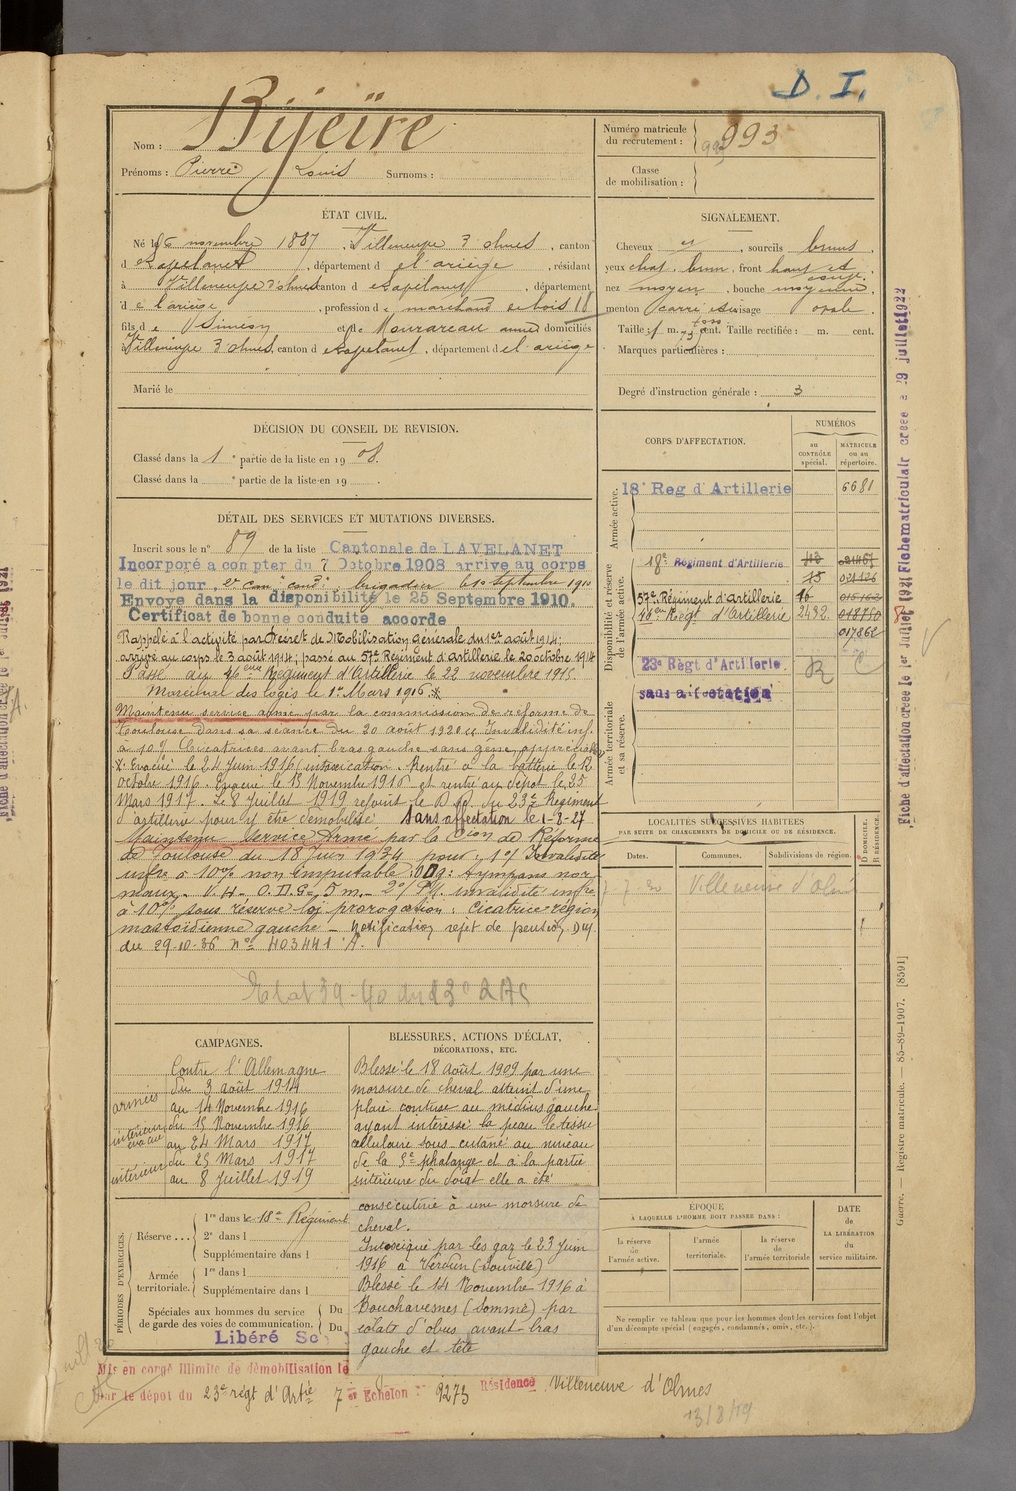 D. I.
Nom : Bijeïre
Prénoms : Pierre Louis Surnoms :
Numéro matricule du recrutement : 993
Classe de mobilisation :
ÉTAT CIVIL.
Né le 6 novembre 1887, Villeneuve d'olmes, canton
d Lavelanet, département d el ariège, résidant
à Villeneuve d'olmes canton d Lavelanet, département
d e l'ariège, profession de marchand de bois 18
fils de Siméon et de Mourareau anne domiciliés
à Villeneuve d'olmes, canton d Lavelanet, département d el ariège
Marié le
SIGNALEMENT.
Cheveux , sourcils bruns,
yeux chat. brun, front haut et
nez moyen, bouche moyenne,
menton carré visage ovale.
Taille : 1 m. 73 cent. Taille rectifiée : m. cent.
Marques particulières :
Degré d'instruction générale : 3
DÉCISION DU CONSEIL DE REVISION.
Classé dans la 1e partie de la liste en 1908.
Classé dans la e partie de la liste en 19
DÉTAIL DES SERVICES ET MUTATIONS DIVERSES.
Inscrit sous le n° 89 de la liste Cantonale de LAVELANET
Incorporé a compter du 7 Octobre 1908 arrive au corps
le dit jour, 2e can. cond. brigadier le 10 septembre 1910
Envoyé dans la disponibilité le 25 Septembre 1910.
Certificat de bonne conduite accorde
Rappelé à l'activité par Décret de Mobilisation générale du 1er août 1914;
arrivé au corps le 3 août 1914; passé au 57e Régiment d'artillerie le 20 octobre 1914
Passé au 46eme Régiment d'Artillerie le 22 novembre 1915.
Maréchal des logis le 1er Mars 1916.*
Maintenu service armé par la commission de réforme de
Toulouse dans sa séance du 20 août 1920 Invalidité inf.
à 10% Cicatrices avant bras gauche sans gêne appréciable
* Evacué le 24 Juin 1916 (intoxication. Rentré à la batterie le 12
octobre 1916. Evacué le 15 Novembre 1916 et rentré au dépôt le 25
Mars 1917. Le 8 Juillet 1919 rejoint le Dépôt du 23e Régiment
d'artillerie pour y être démobilisé Sans affectation le 1-8-27
Maintenu Service Armé par la Cion de Réforme
de Toulouse du 18 Juin 1934 pour : 1°/ Invalidité
infre à 10% non imputable : tympans nor
maux. V.H. O.D.G = 5m. 2°/ invalidité infre
à 10% sous réserve loi prorogation : cicatrice région
mastoïdienne gauche - Notification rejet de pension DM
du 29-10-36 n° 403441 A.
Etat 39-40 du 23e
CORPS D'AFFECTATION.
NUMÉROS
au CONTRÔLE spécial.
MATRICULE ou au répertoire.
Armée active.
18e Reg d'Artillerie 6681
Disponibilité et réserve de l'armée active.
18e Régiment d'Artillerie
57e Régiment d'artillerie 16
46eme Regt d'Artillerie 2492
017862
Armée territoriale et sa réserve.
23e Règt d'Artillerie
sans affectation
LOCALITÉS SUCCESSIVES HABITÉES
PAR SUITE DE CHANGEMENTS DE DOMICILE OU DE RÉSIDENCE.
Dates. Communes. Subdivisions de région. D DOMICILE. R RÉSIDENCE.
7-7-20 Villeneuve d'Olmes
CAMPAGNES.
Contre l'Allemagne
armées du 3 août 1914
au 14 Novembre 1916
intérieur évacué du 15 Novembre 1916
au 24 Mars 1917
intérieur du 25 Mars 1917
au 8 Juillet 1919
BLESSURES, ACTIONS D'ÉCLAT,
DÉCORATIONS, ETC.
Blessé le 18 août 1909 par une
morsure de cheval atteint d'une
plaie contuse au médius gauche
ayant intéressé la peau le tissu
cellulaire sous cutané au niveau
de la 3e phalange et à la partie
intérieure du doigt elle a été
consécutive à une morsure de
cheval.
Intoxiqué par les gaz le 23 Juin
1916 à Verdun (Souville)
Blessé le 14 Novembre 1916 à
Bouchavesnes (Somme) par
éclats d'obus avant bras
gauche et tête
PÉRIODES D'EXERCICES.
Réserve ... 1re dans le 18e Régiment
2e dans l
Supplémentaire dans l
Armée territoriale. 1re dans l
Supplémentaire dans l
Spéciales aux hommes du service de garde des voies de communication. Du
Du
Libéré Ser
ÉPOQUE
À LAQUELLE L'HOMME DOIT PASSER DANS :
la réserve de l'armée active.
l'armée territoriale.
la réserve de l'armée territoriale
DATE de LA LIBÉRATION du service militaire.
Ne remplir ce tableau que pour les hommes dont les services font l'objet
d'un décompte spécial (engagés, condamnés, omis, etc.).
Mis en congé illimité de démobilisation le
Par le dépôt du 23e régt d'Artie 7e Echelon n° 9275 Résidence Villeneuve d'Olmes
13/8/19
Fiche d'affectation créée le 1er Juillet 1921 Fiche matriculair creee e 29 juillet 1922
Guerre. — Registre matricule. — 85-89-1907. [8591]